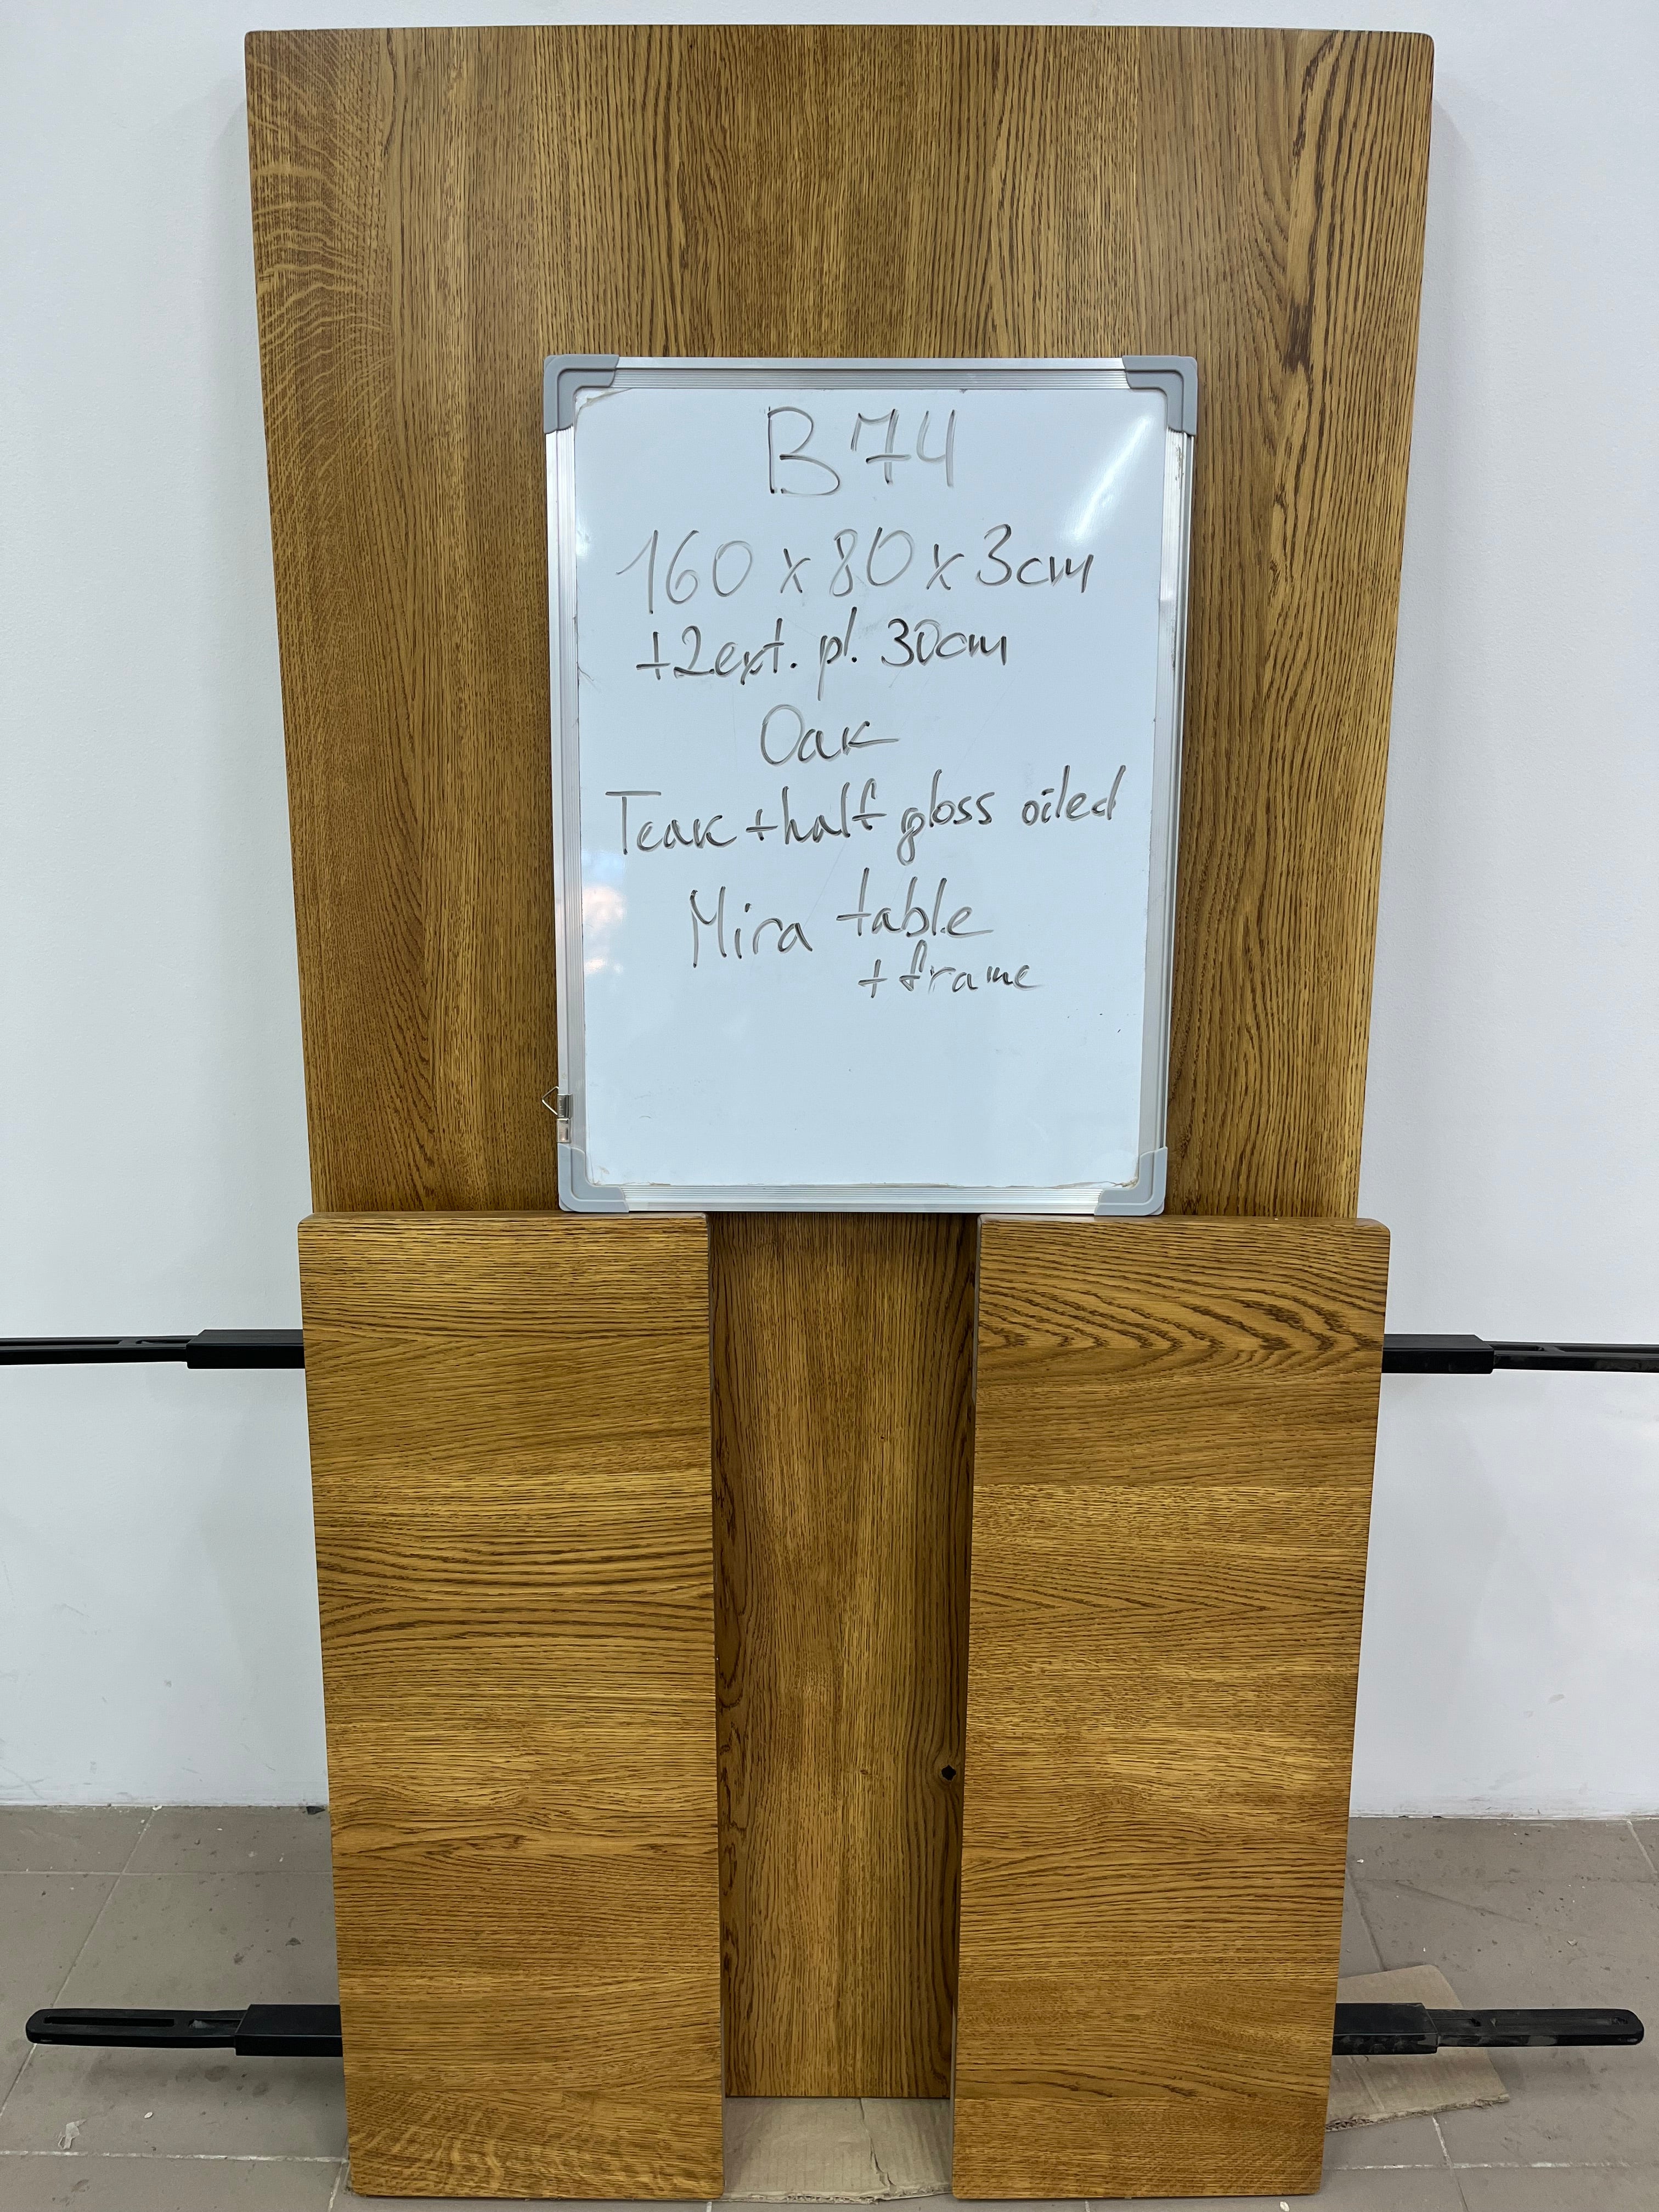 B74
160 x 80 x 3cm
+2ext. pl. 30cm
Oak
Teak + half gloss oiled
Mira table
+ frame